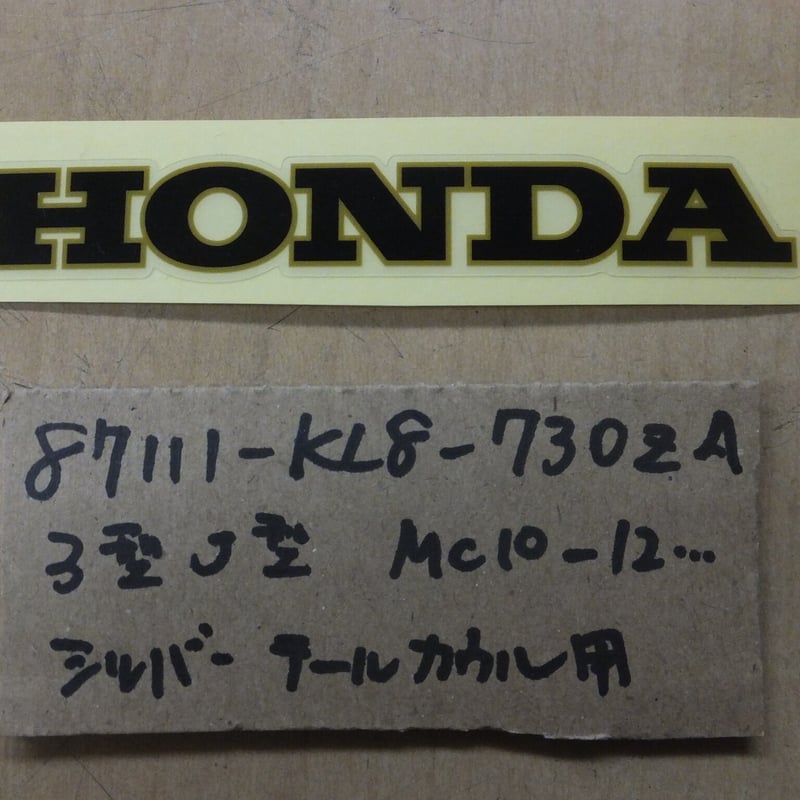 HONDA
87111-KL8-730ZA
3型J型 MC10-12...
シルバー テールカウル用